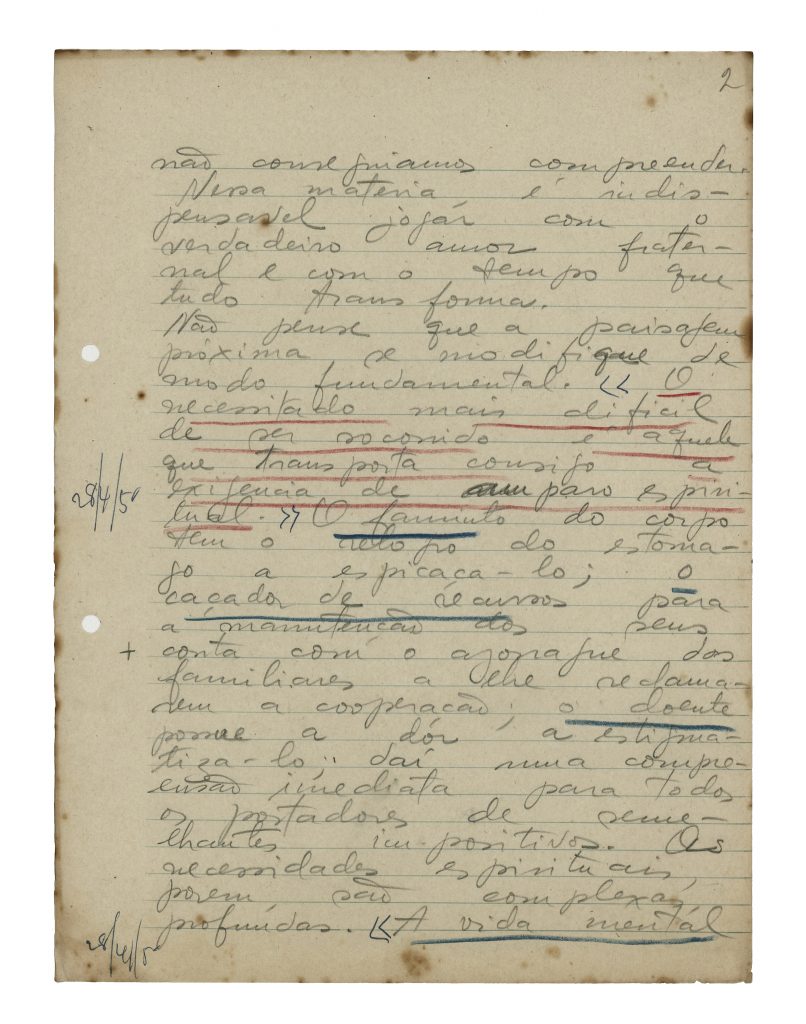 2
não conseguiamos compreender.
Nessa materia, é indis-
pensavel jogár com o
verdadeiro amor frater-
nal e com o tempo que
tudo transforma.
Não pense que a paisagem
próxima se modifique de
modo fundamental. << O
necessitado mais dificil
de ser socorrido é aquele
que transporta consigo a
exigencia de amparo espiri-
tual. >> O faminto do corpo
tem o relogio do estoma-
go a espicaça-lo; o
caçador de recursos para
a manutenção dos seus
conta com o azorrague dos
familiares a lhe reclama-
rem a cooperação; o doente
possue a dôr a estigma-
tiza-lo; daí uma compre-
ensão imediata para todos
os portadores de seme-
lhantes impositivos. As
necessidades espirituais,
porem, são complexas,
profundas. << A vida mentál
28/4/50
+
28/4/50